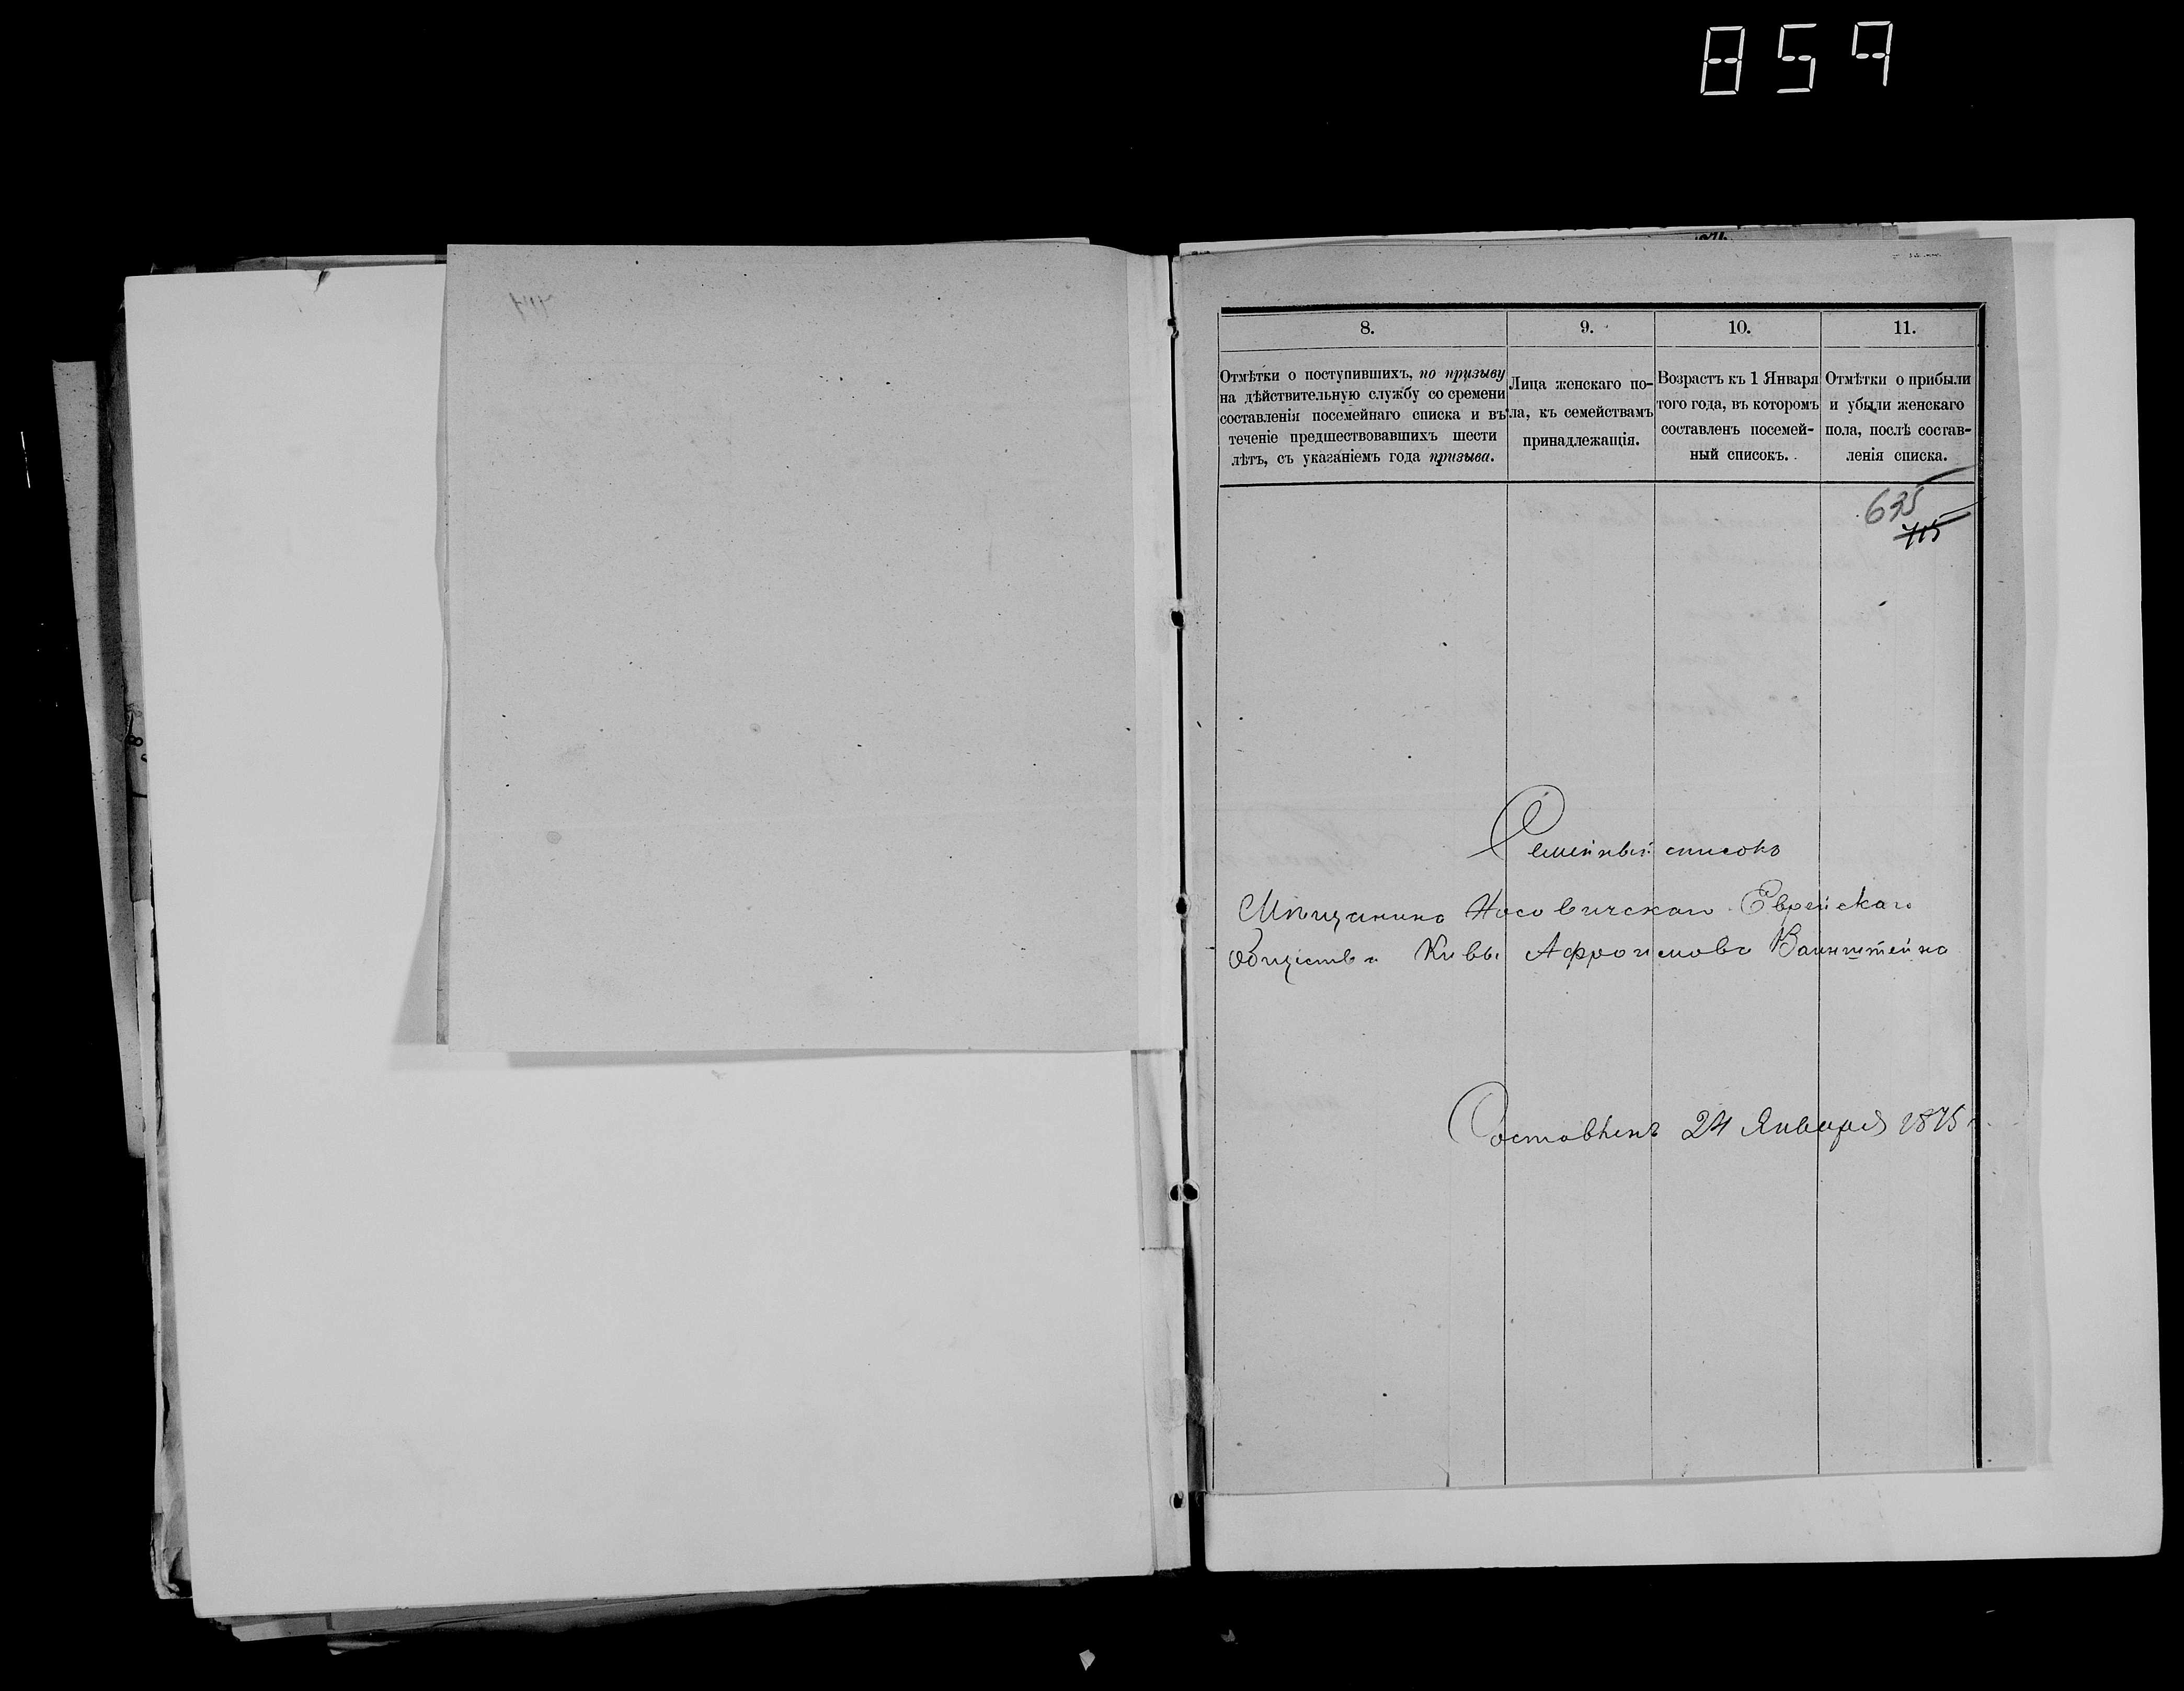 859
8.
9.
10.
11.
Отмѣтки о поступившихъ, по призыву
на дѣйствительную службу со сремени
составленія посемейнаго списка и въ
теченіе предшествовавшихъ шести
лѣтъ, съ указаніемъ года призыва.
Лица женскаго по-
ла, къ семействамъ
принадлежащія.
Возрастъ къ 1 Января
того года, въ которомъ
составленъ посемей-
ный списокъ.
Отмѣтки о прибыли
и убыли женскаго
пола, послѣ состав-
ленія списка.
635
715
Семейный списокъ
Мѣщанина Носовичскаго Еврейскаго
Общества Кивы Афроимова Ваинштейна
Составленъ 24 Января 1875